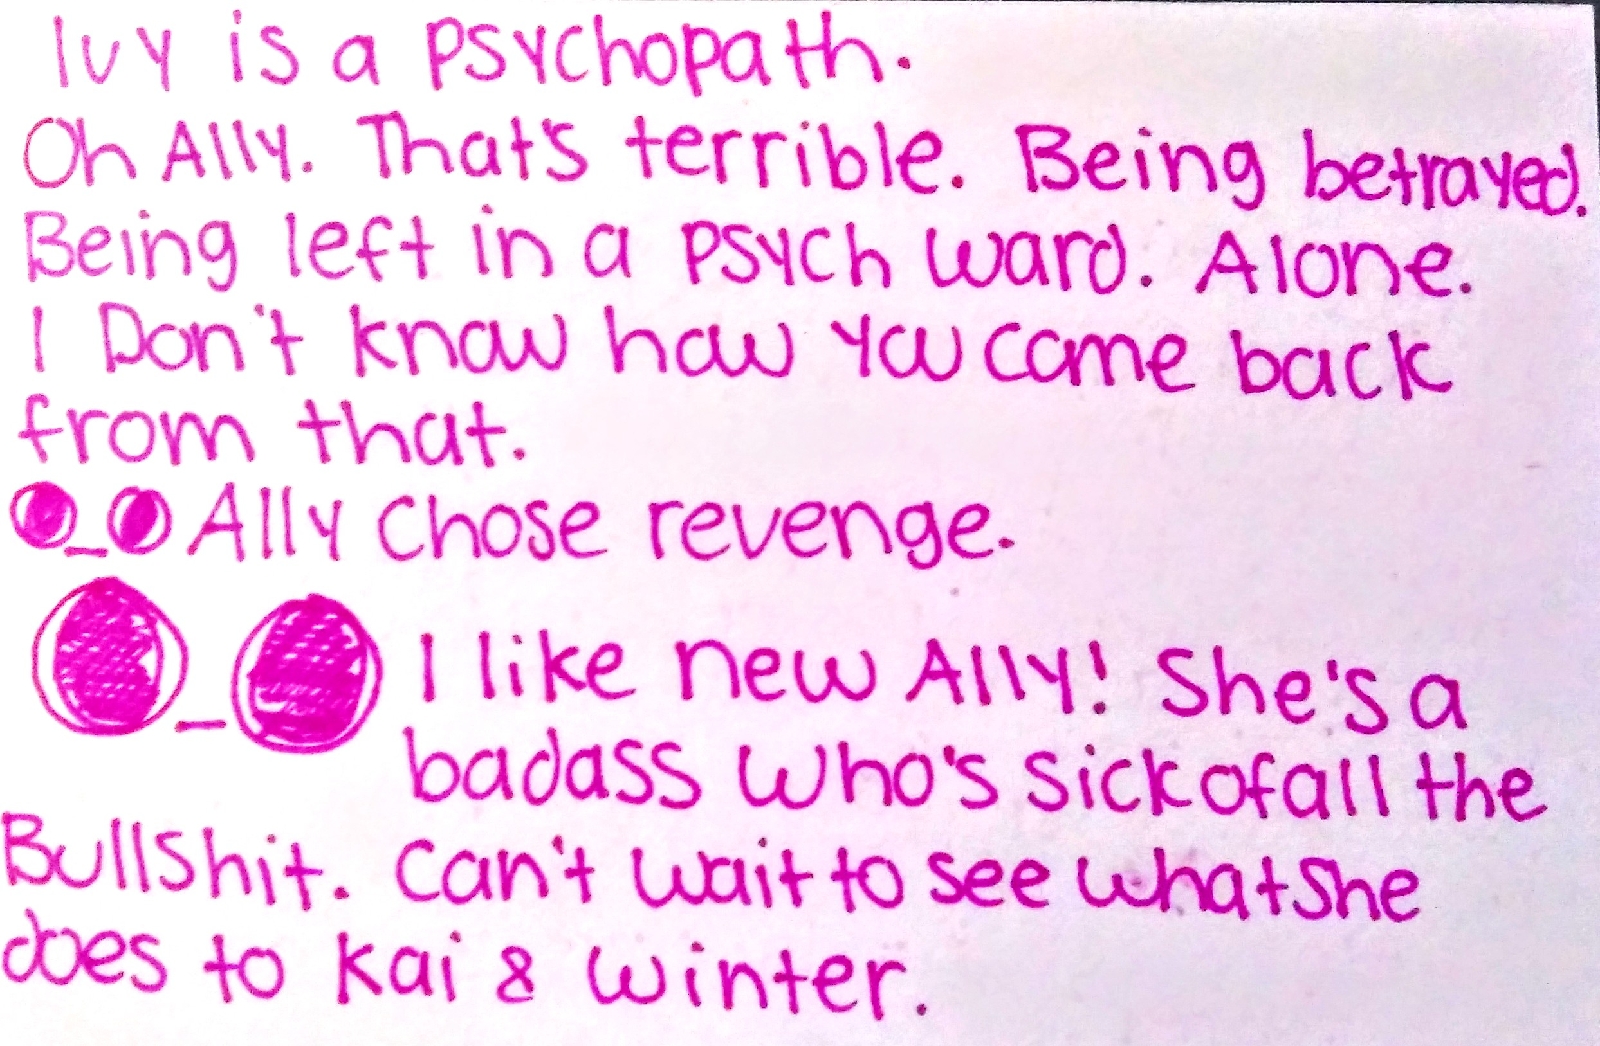 Ivy is a psychopath.
Oh Ally. That's terrible. Being betrayed.
Being left in a psych ward. Alone.
I Don't know how you come back
from that.
Ally chose revenge.
I like new Ally! She's a
badass who's sick of all the
Bullshit. Can't wait to see what she
does to Kai & Winter.